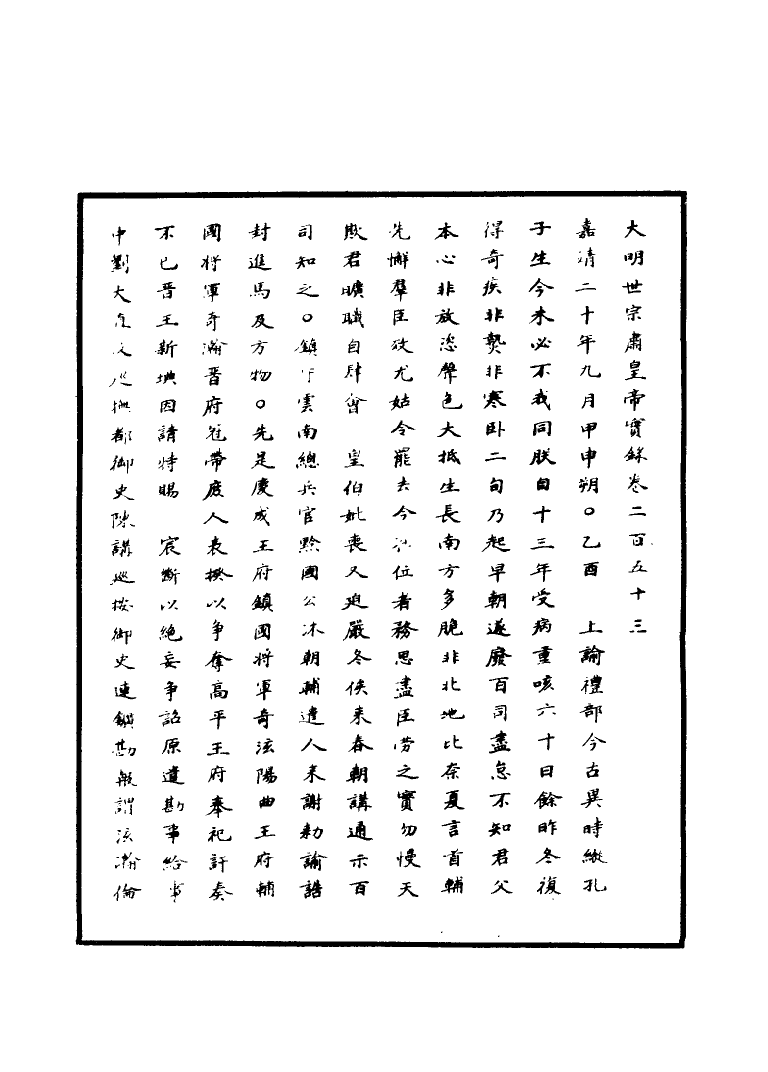 大明世宗肅皇帝實錄卷二百五十三
嘉靖二十年九月甲申朔○乙酉　上諭禮部今古異時縱孔
子生今未必不我同朕自十三年受病重咳六十日餘昨冬復
得奇疾非熱非寒卧二旬乃起早朝遂廢百司盡怠不知君父
本心非放恣聲色大抵生長南方多脆非北地比奈夏言首輔
先懈羣臣效尤姑令罷去今在位者務思盡臣勞之實勿慢天
欺君曠職自肆會　皇伯妣喪又迫嚴冬俟来春朝講通示百
司知之○鎮守雲南總兵官黔國公沐朝輔遣人来謝勑諭誥
封進馬及方物○先是慶成王府鎮國將軍奇浤陽曲王府輔
國將軍奇瀚晋府冠帶庶人表揆以争奪高平王府奉祀訐奏
不已晋王新㙉因請特賜　宸斷以絶妄争詔原遣勘事給事
中劉大直及巡撫都御史陳講巡按御史連鑛勘報謂浤瀚倫